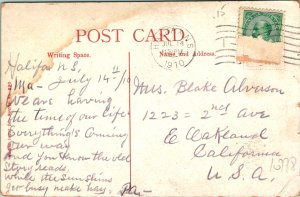 POST CARD.
Writing Space.
Name and Address.
JUL 14
1910
N.S.
Halifax N.S,
July 14th/10
Ma-
We are having
the time of our life
Everything's Coming
our way
And you know the old
Story reads,
while the sun shins
get busy make hay. Pa-
Mrs. Blake Alverson
1223 = 2nd Ave
E Oakland
California
U.S.A.